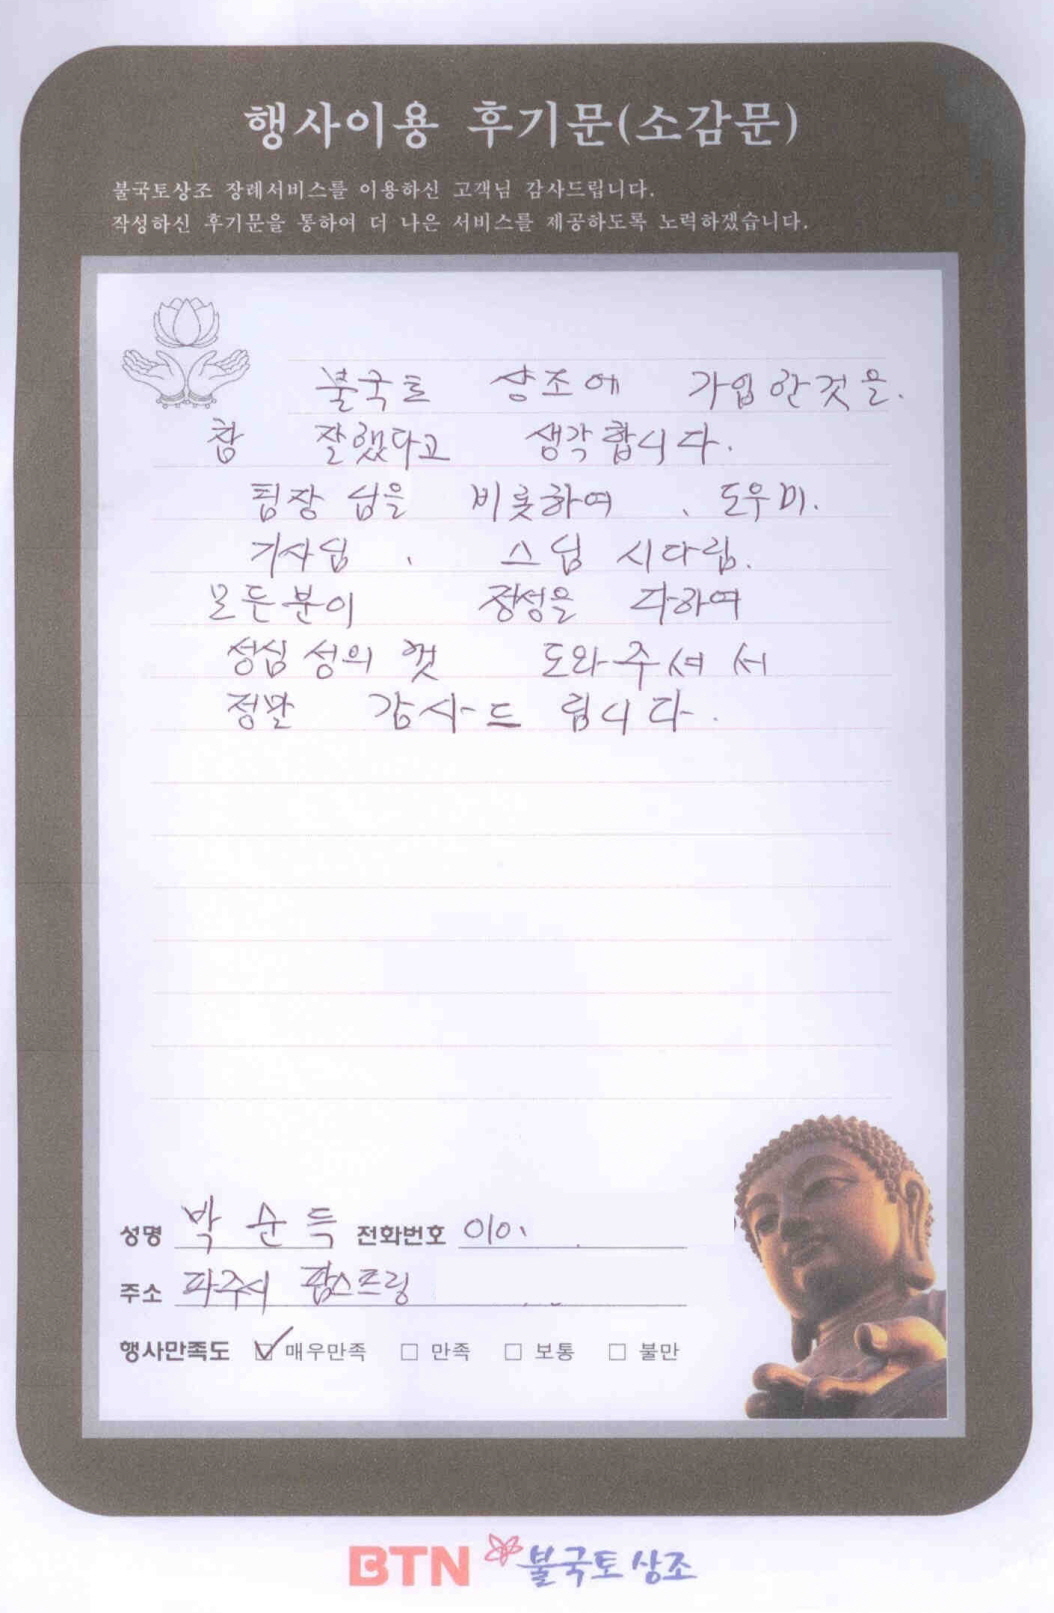 행사이용 후기문(소감문)
불국토상조 장례서비스를 이용하신 고객님 감사드립니다.
작성하신 후기문을 통하여 더 나은 서비스를 제공하도록 노력하겠습니다.
불국토 상조에 가입한것을.
참 잘했다고 생각합니다.
팀장님을 비롯하여, 도우미.
기사님, 스님 시다림.
모든분이 정성을 다하여
성심성의 껏 도와주셔서
정말 감사드립니다.
성명 박순득 전화번호 010,
주소 파주시 팜스프링
행사만족도 ☑ 매우만족 □ 만족 □ 보통 □ 불만
BTN 불국토상조